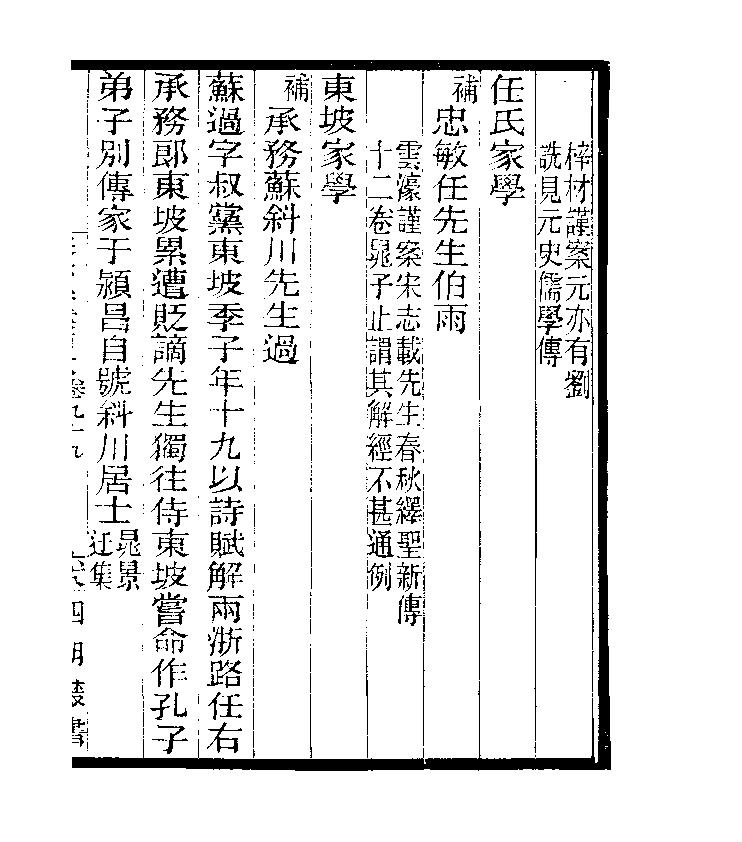 梓材謹案元亦有劉
詵見元史儒學傳
任氏家學
補忠敏任先生伯雨
雲濠謹案宋志載先生春秋繹聖新傳
十二卷晁子止謂其解經不甚通例
東坡家學
補承務蘇斜川先生過
蘇過字叔黨東坡季子年十九以詩賦解兩浙路任右
承務郎東坡累遭貶謫先生獨往侍東坡嘗命作孔子
弟子別傳家于潁昌自號斜川居士晁景
迂集
卷九十九
四明叢書